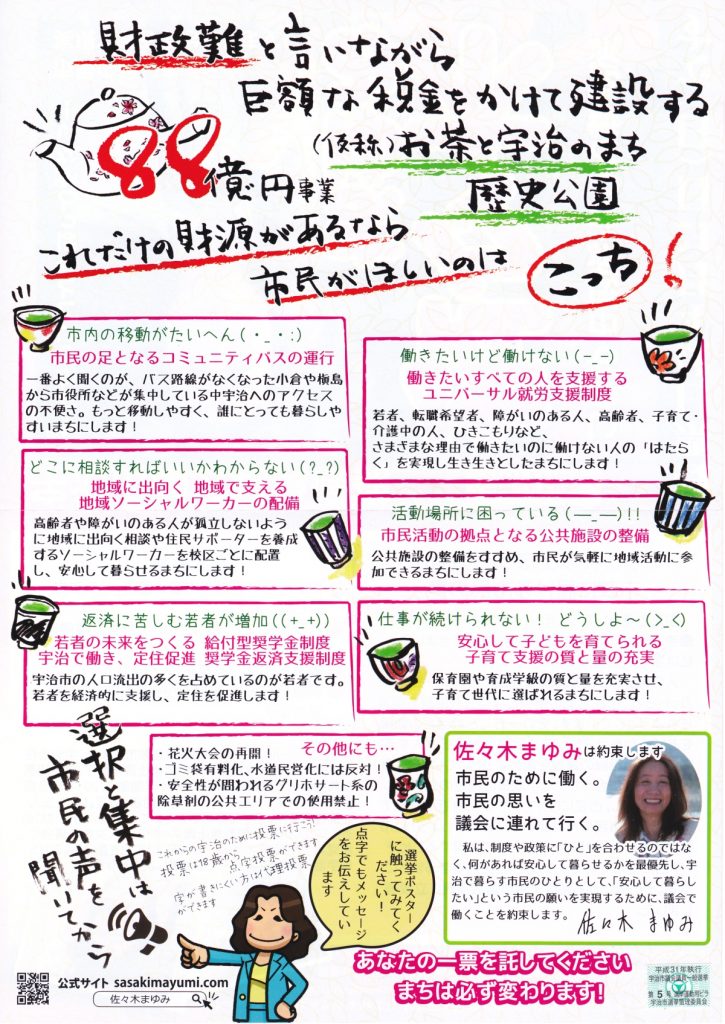 財政難と言いながら
巨額な税金をかけて建設する
(仮称)お茶と宇治のまち
歴史公園
88億円事業
これだけの財源があるなら
市民がほしいのは こっち!
市内の移動がたいへん(・_・;)
市民の足となるコミュニティバスの運行
一番よく聞くのが、バス路線がなくなった小倉や槇島
から市役所などが集中している中宇治へのアクセス
の不便さ。もっと移動しやすく、誰にとっても暮らしや
すいまちにします!
働きたいけど働けない(-_-)
働きたいすべての人を支援する
ユニバーサル就労支援制度
若者、転職希望者、障がいのある人、高齢者、子育て・
介護中の人、ひきこもりなど、
さまざまな理由で働きたいのに働けない人の「はたら
く」を実現し生き生きとしたまちにします!
どこに相談すればいいかわからない(?_?)
地域に出向く 地域で支える
地域ソーシャルワーカーの配備
高齢者や障がいのある人が孤立しないよう
に地域に出向く相談や住民サポーターを養成
するソーシャルワーカーを校区ごとに配置
し、安心して暮らせるまちにします!
活動場所に困っている(—_—)!!
市民活動の拠点となる公共施設の整備
公共施設の整備をすすめ、市民が気軽に地域活動に参
加できるまちにします!
返済に苦しむ若者が増加((+_+))
若者の未来をつくる 給付型奨学金制度
宇治で働き、定住促進 奨学金返済支援制度
宇治市の人口流出の多くを占めているのが若者です。
若者を経済的に支援し、定住を促進します!
仕事が続けられない! どうしよ~(>_<)
安心して子どもを育てられる
子育て支援の質と量の充実
保育園や育成学級の質と量を充実させ、
子育て世代に選ばれるまちにします!
選択と集中は
市民の声を
聞いてから
その他にも…
・花火大会の再開!
・ゴミ袋有料化、水道民営化には反対!
・安全性が問われるグリホサート系の
除草剤の公共エリアでの使用禁止!
これからの宇治のために投票に行こう!
投票は18歳から 点字投票ができます
字が書きにくい方は代理投票
ができます
選挙ポスター
に触ってみてく
ださい!
点字でもメッセージ
をお伝えしてい
ます
佐々木まゆみは約束します
市民のために働く。
市民の思いを
議会に連れて行く。
私は、制度や政策に「ひと」を合わせるのではな
く、何があれば安心して暮らせるかを最優先し、宇
治で暮らす市民のひとりとして、「安心して暮らし
たい」という市民の願いを実現するために、議会で
働くことを約束します。
佐々木 まゆみ
あなたの一票を託してください
まちは必ず変わります!
公式サイト sasakimayumi.com
佐々木まゆみ
平成31年執行
宇治市議会議員一般選挙
第5号 選挙運動用ビラ
宇治市選挙管理委員会